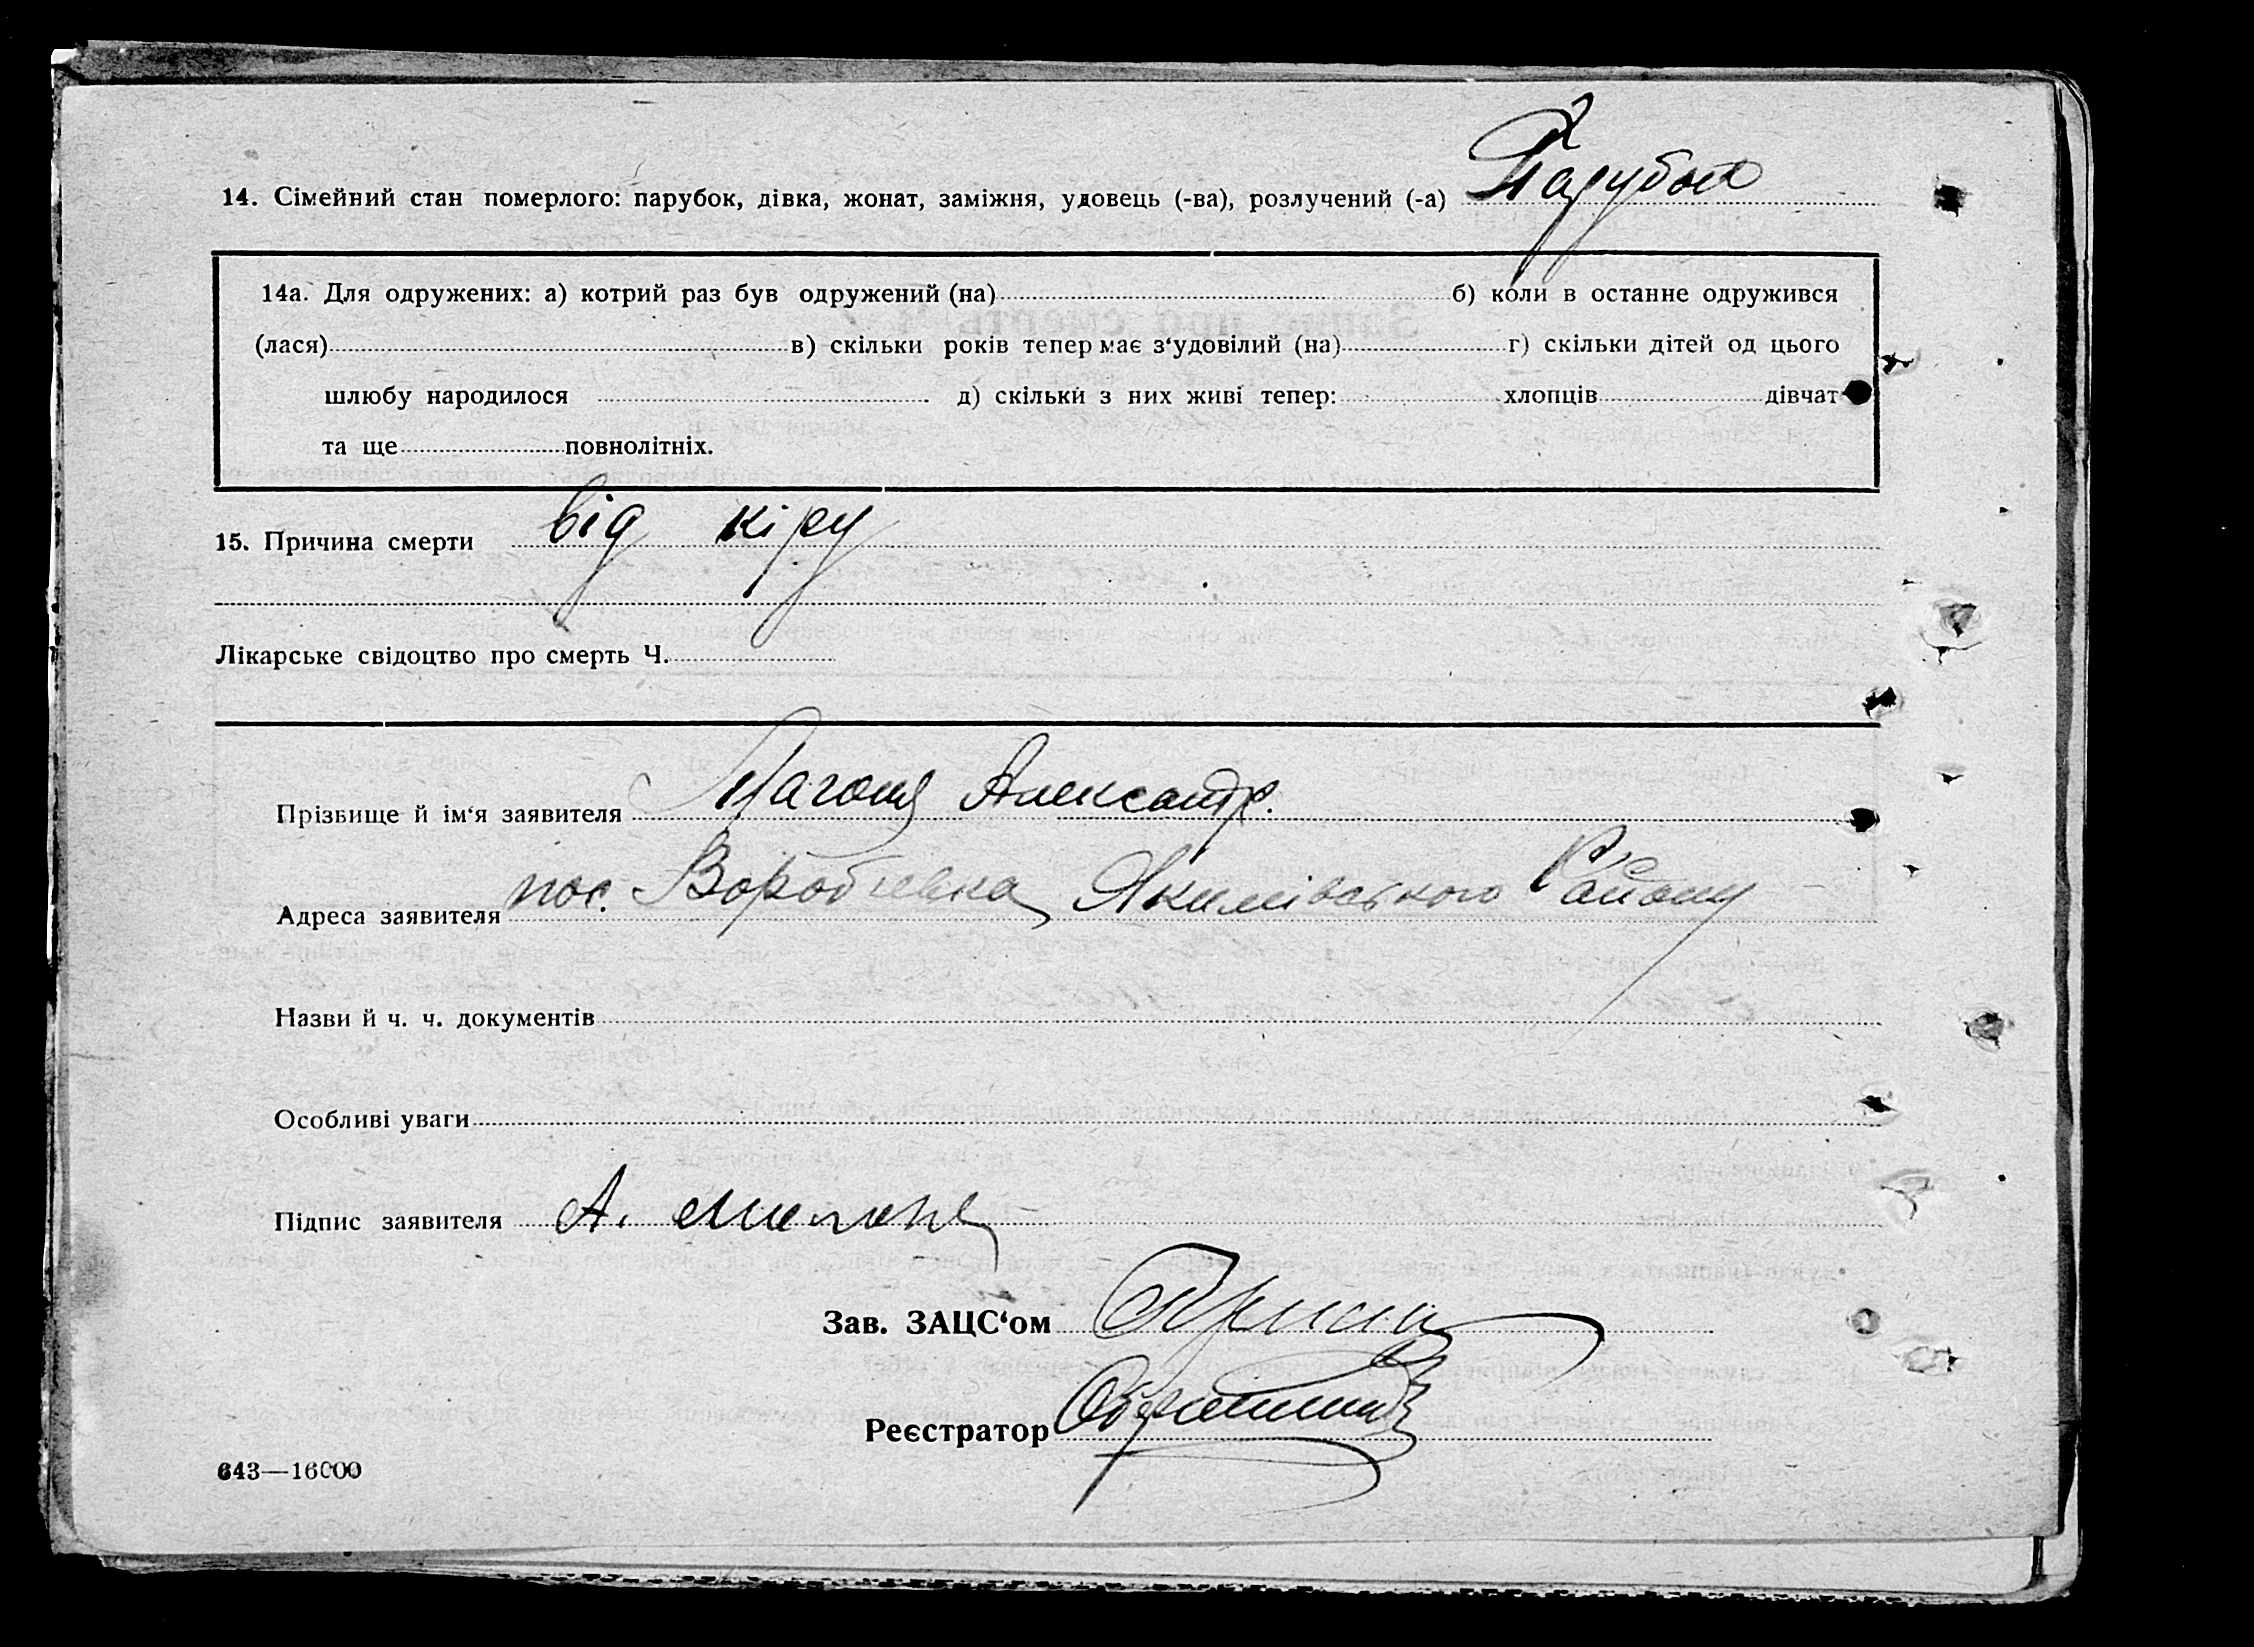 14. Сімейний стан померлого: парубок, дівка, жонат, заміжня, удовець (-ва), розлучений (-а) Парубок
14а. Для одружених: а) котрий раз був одружений (на) б) коли в останнє одружився
(лася) в) скільки років тепер має з‘удовілий (на) г) скільки дітей од цього
шлюбу народилося д) скільки з них живі тепер: хлопців дівчат
та ще повнолітніх.
15. Причина смерти від кіру
Лікарське свідоцтво про смерть Ч.
Прізвище й ім‘я заявителя Александр.
Адреса заявителя пос. Воробієвка Якимівського Району
Назви й ч. ч. документів
Особливі уваги
Підпис заявителя А.
Зав. ЗАЦС‘ом
Реєстратор
643—16000